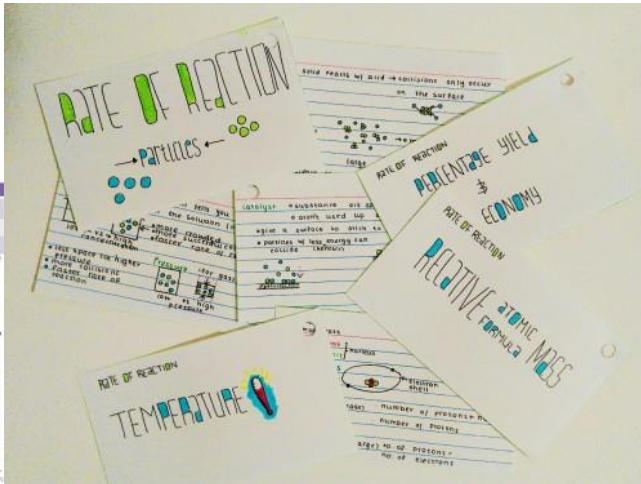 RATE OF REACTION
→ particles ←
solid reacts w/ acid → collisions only occur
on the surface
large
RATE OF REACTION
PERCENTAGE YIELD
&
ECONOMY
tells you
the solution
more crowded
more successful
faster rate of
vs high
concentration
less space for higher
pressure
more collisions
faster rate of
reaction
Pressure
low vs high
pressure
catalyst • substance
• aren't used up
• give a surface to stick to
• particles w/ less energy can
collide
RATE OF REACTION
RELATIVE ATOMIC
FORMULA MASS
RATE OF REACTION
TEMPERATURE
nucleus
electron
shell
number of protons+
number of protons
no of protons=
no of electrons